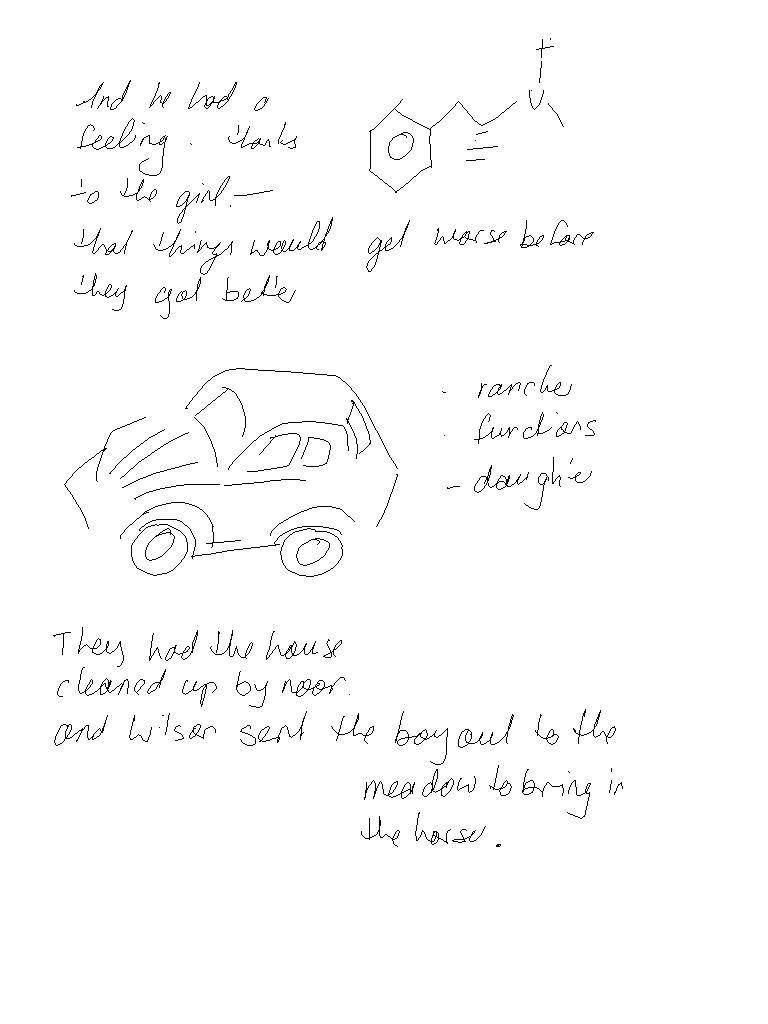 And he had a
feeling. thanks
to the girl. —
that things would get worse before
they got better
. rancher
. functions
- daughter
They had the house
cleaned up by noon.
and Wilson sent the boy out to the
meadow to bring in
the horse.